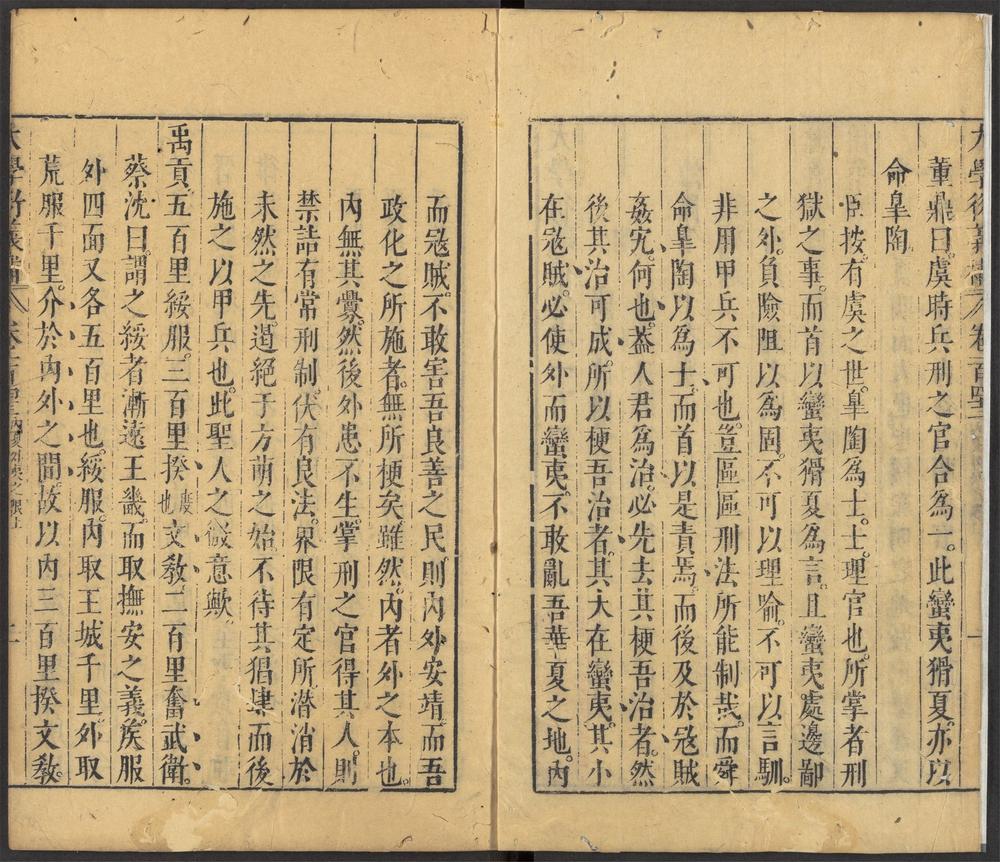 董鼎曰虞時兵刑之官合為一此蠻夷猾夏亦以
命臯陶
臣按有虞之世臯陶為士士理官也所掌者刑
獄之事而首以蠻夷猾夏為言且蠻夷處邊鄙
之外負險阻以為固不可以理喻不可以言馴
非用甲兵不可也豈區區刑法所能制哉而舜
命臯陶以為士而首以是責焉而後及於寇賊
姦宄何也蓋人君為治必先去其梗吾治者然
後其治可成所以梗吾治者其大在蠻夷其小
在寇賊必使外而蠻夷不敢亂吾華夏之地內
而寇賊不敢害吾良善之民則內外安靖而吾
政化之所施者無所梗矣雖然內者外之本也
內無其釁然後外患不生掌刑之官得其人則
禁詰有常刑制伏有良法界限有定所潛消於
未然之先遏絕于方萌之始不待其猖肆而後
施之以甲兵也此聖人之微意歟
禹貢五百里綏服三百里揆度也文敎二百里奮武衛
蔡沈曰謂之綏者漸遠王畿而取撫安之義矦服
外四面又各五百里也綏服內取王城千里外取
荒服千里介於內外之間故以內三百里揆文敎